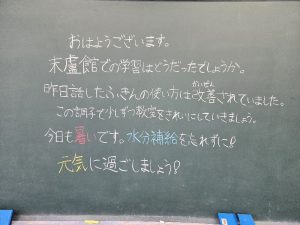 おはようございます。
末盧館での学習はどうだったでしょうか。
かいぜん
昨日話したふきんの使い方は改善されていました。
この調子で少しずつ教室をきれいにしていきましょう。
今日も暑いです。水分補給を忘れずに!
元気に過ごしましょう!